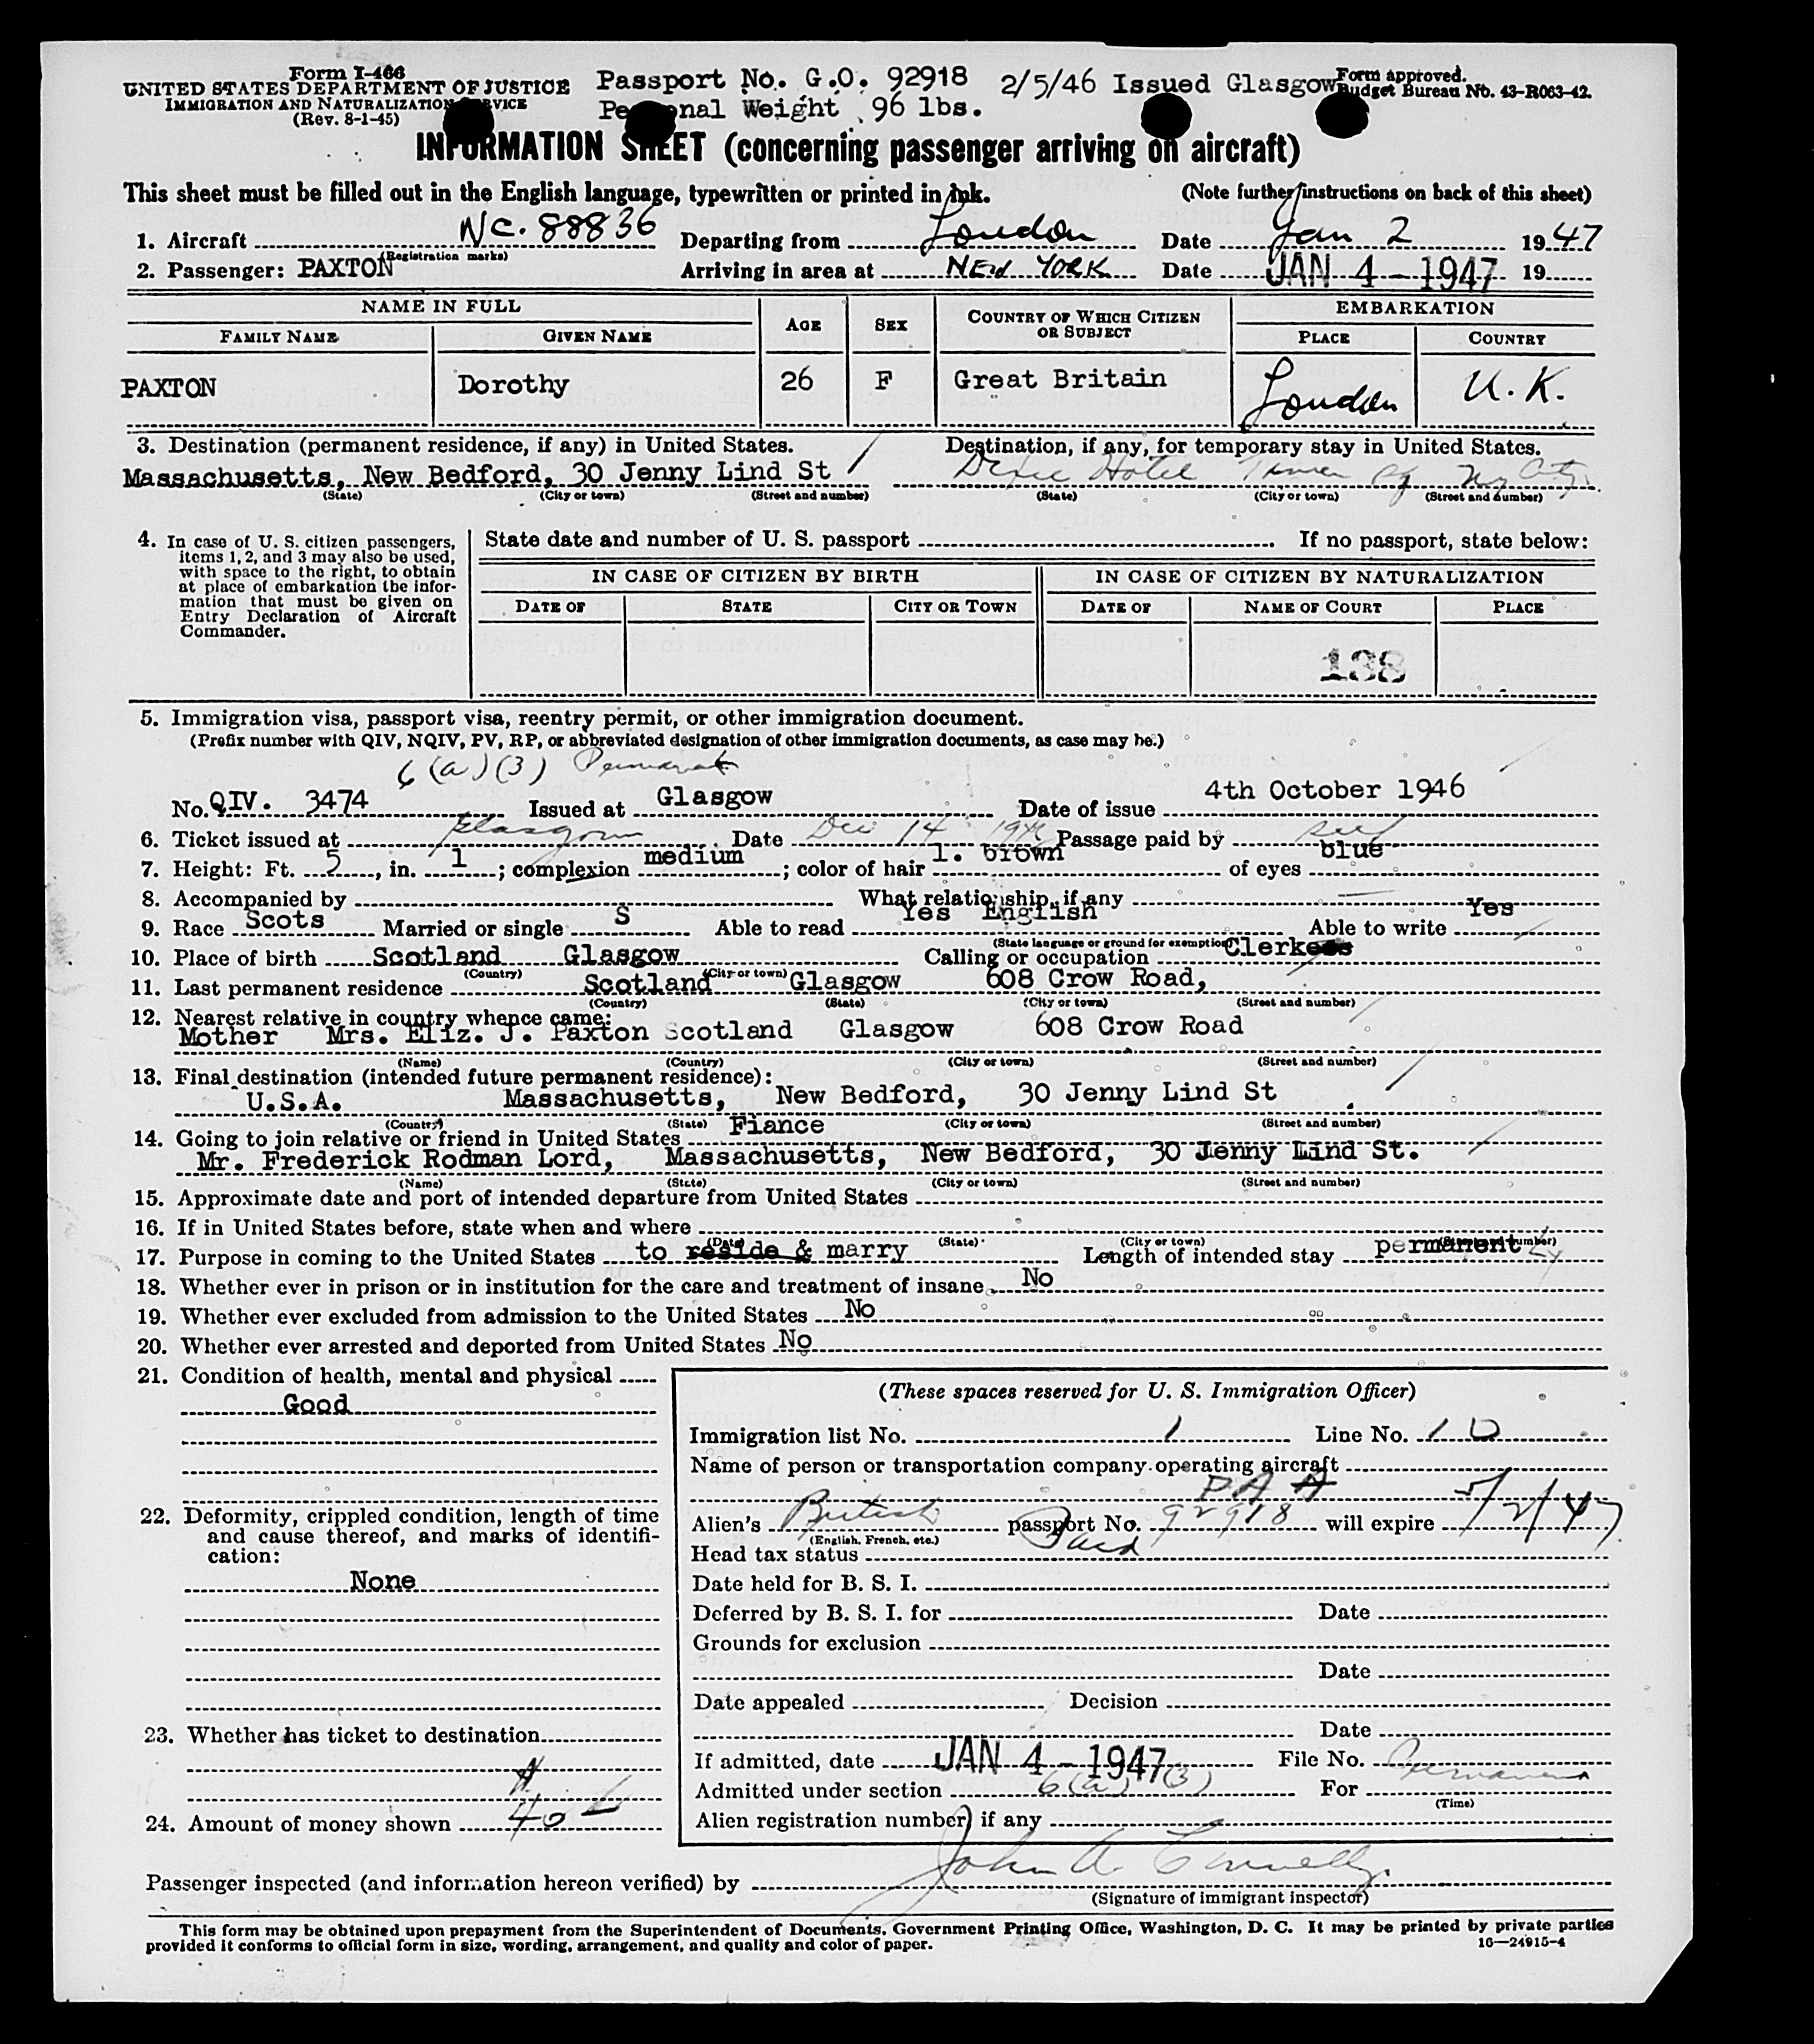 Form I-466
UNITED STATES DEPARTMENT OF JUSTICE
IMMIGRATION AND NATURALIZATION SERVICE
(Rev. 8-1-45)
Passport No. G.O. 92918 2/5/46 Issued Glasgow
Personal Weight 96 lbs.
Form approved.
Budget Bureau No. 43-R063-42.
INFORMATION SHEET (concerning passenger arriving on aircraft)
This sheet must be filled out in the English language, typewritten or printed in ink. (Note further instructions on back of this sheet)
1. Aircraft NC. 88836 Departing from London Date Jan 2 1947
(Registration marks)
2. Passenger: PAXTON Arriving in area at NEW YORK Date JAN 4 - 1947 19
NAME IN FULL AGE SEX COUNTRY OF WHICH CITIZEN OR SUBJECT EMBARKATION
FAMILY NAME GIVEN NAME PLACE COUNTRY
PAXTON Dorothy 26 F Great Britain London U.K.
3. Destination (permanent residence, if any) in United States. Destination, if any, for temporary stay in United States.
Massachusetts, New Bedford, 30 Jenny Lind St Dixie Hotel Times Sq NY City
(State) (City or town) (Street and number) (State) (City or town) (Street and number)
4. In case of U. S. citizen passengers, items 1, 2, and 3 may also be used, with space to the right, to obtain at place of embarkation the information that must be given on Entry Declaration of Aircraft Commander.
State date and number of U. S. passport If no passport, state below:
IN CASE OF CITIZEN BY BIRTH IN CASE OF CITIZEN BY NATURALIZATION
DATE OF STATE CITY OR TOWN DATE OF NAME OF COURT PLACE
138
5. Immigration visa, passport visa, reentry permit, or other immigration document.
(Prefix number with QIV, NQIV, PV, RP, or abbreviated designation of other immigration documents, as case may be.)
6(a)(3) Permanent
No. QIV. 3474 Issued at Glasgow Date of issue 4th October 1946
6. Ticket issued at Glasgow Date Dec 14 1946 Passage paid by self
7. Height: Ft. 5, in. 1; complexion medium; color of hair l. brown of eyes blue
8. Accompanied by What relationship, if any
9. Race Scots Married or single S Able to read Yes English Able to write Yes
(State language or ground for exemption)
10. Place of birth Scotland Glasgow Calling or occupation Clerkess
(Country) (City or town)
11. Last permanent residence Scotland Glasgow 608 Crow Road,
(Country) (State) (City or town) (Street and number)
12. Nearest relative in country whence came:
Mother Mrs. Eliz. J. Paxton Scotland Glasgow 608 Crow Road
(Name) (Country) (City or town) (Street and number)
13. Final destination (intended future permanent residence):
U.S.A. Massachusetts, New Bedford, 30 Jenny Lind St
(Country) (State) (City or town) (Street and number)
14. Going to join relative or friend in United States Fiance
Mr. Frederick Rodman Lord, Massachusetts, New Bedford, 30 Jenny Lind St.
(Name) (State) (City or town) (Street and number)
15. Approximate date and port of intended departure from United States
16. If in United States before, state when and where
(Date) (State) (City or town) (Street and number)
17. Purpose in coming to the United States to reside & marry Length of intended stay permanent
18. Whether ever in prison or in institution for the care and treatment of insane No
19. Whether ever excluded from admission to the United States No
20. Whether ever arrested and deported from United States No
21. Condition of health, mental and physical
Good
22. Deformity, crippled condition, length of time and cause thereof, and marks of identification:
None
23. Whether has ticket to destination
24. Amount of money shown 40
(These spaces reserved for U. S. Immigration Officer)
Immigration list No. 1 Line No. 10
Name of person or transportation company operating aircraft
P.A.A
Alien's British passport No. 92918 will expire 5/2/47
(English, French, etc.)
Head tax status Paid
Date held for B. S. I.
Deferred by B. S. I. for Date
Grounds for exclusion
Date
Date appealed Decision
Date
If admitted, date JAN 4 - 1947 File No.
Admitted under section 6(a)(3) For Permanent
(Time)
Alien registration number, if any
Passenger inspected (and information hereon verified) by John A. Connelly
(Signature of immigrant inspector)
This form may be obtained upon prepayment from the Superintendent of Documents, Government Printing Office, Washington, D. C. It may be printed by private parties
provided it conforms to official form in size, wording, arrangement, and quality and color of paper.
16—24915-4